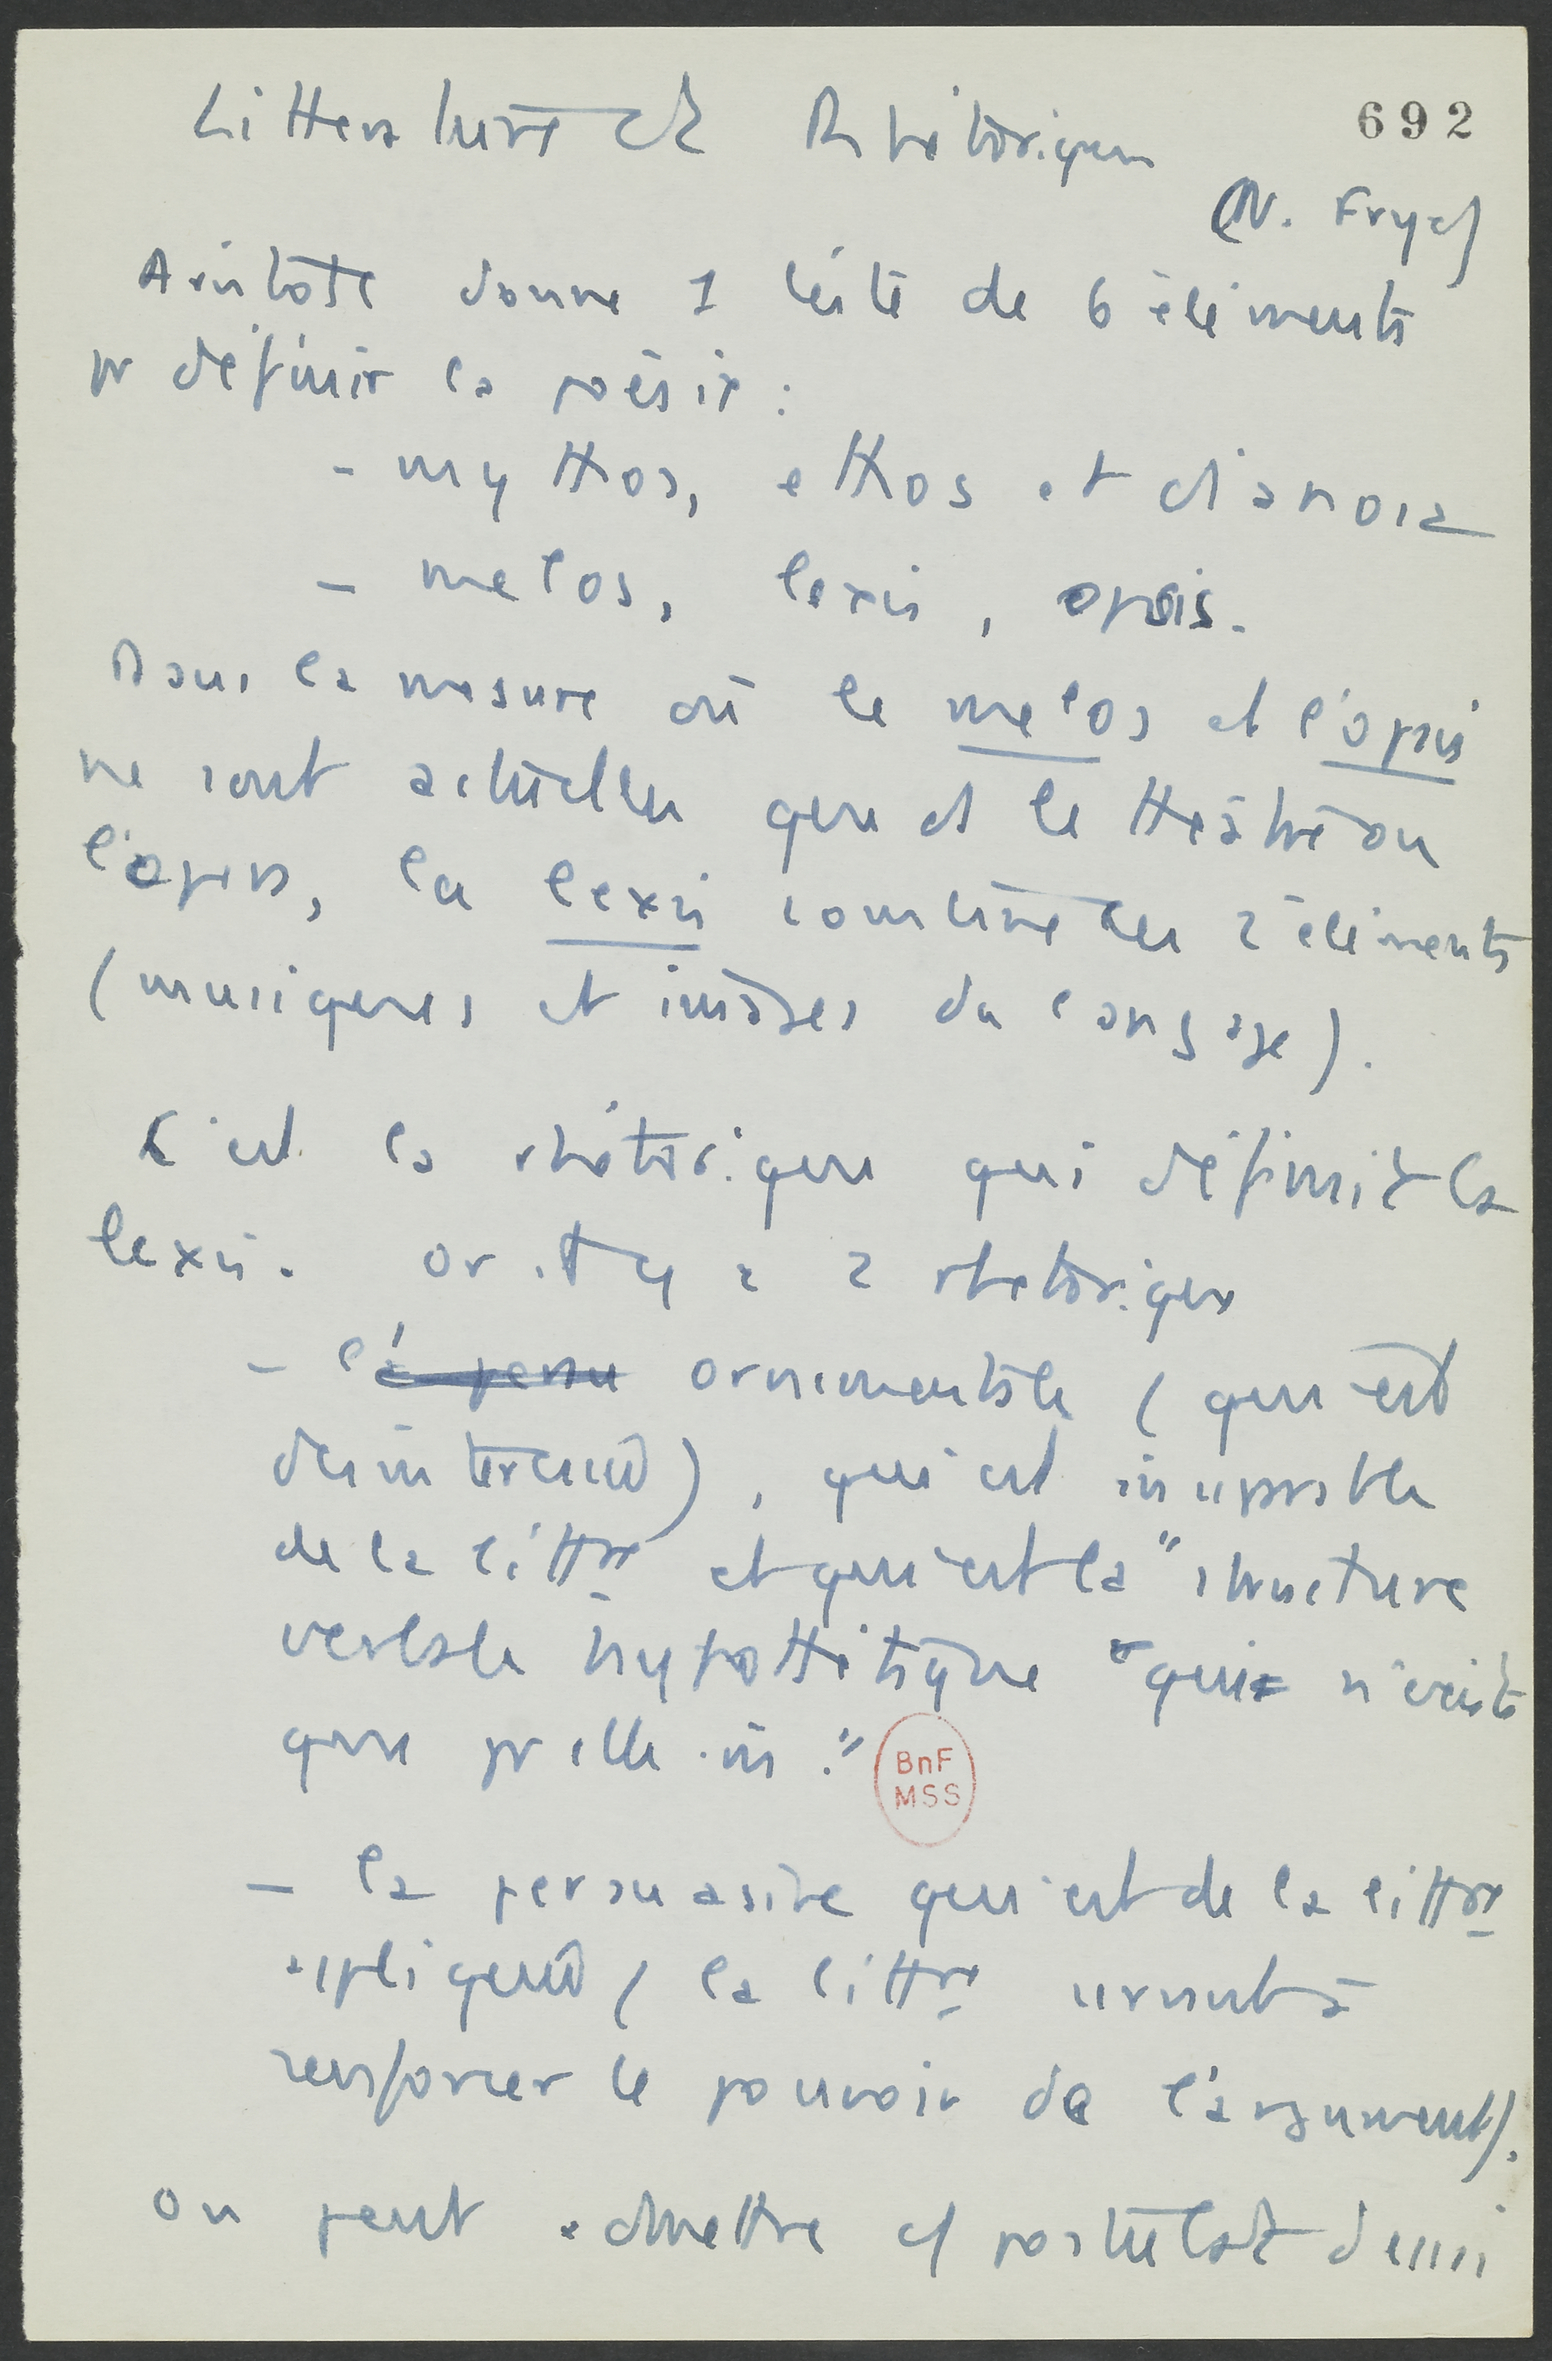 692
Litterature et Rhétorique
(N. Frye)
Aristote donne 1 liste de 6 éléments
pr définir la poésie :
- mythos, ethos et dianoia
- melos, lexis, opsis.
Dans la mesure où le melos et l'opsis
ne sont actuelles que ds le théâtre ou
l'opera, la lexis combine les 2 éléments
(musiques et images du langage).
C'est la rhétorique qui définit la
lexis. Or il y a 2 rhetorique
- l'à pensu ornementale (qui est
desinteressée), qui est inséparable
de la littre et qui est la "structure
verbale hypothétique "qui n'existe
que pr elle-m."
BnF
MSS
- la persuasive qui est de la littre
appliquée (la littre servant à
renforcer le pouvoir de l'argument).
On peut admettre cf postulat de